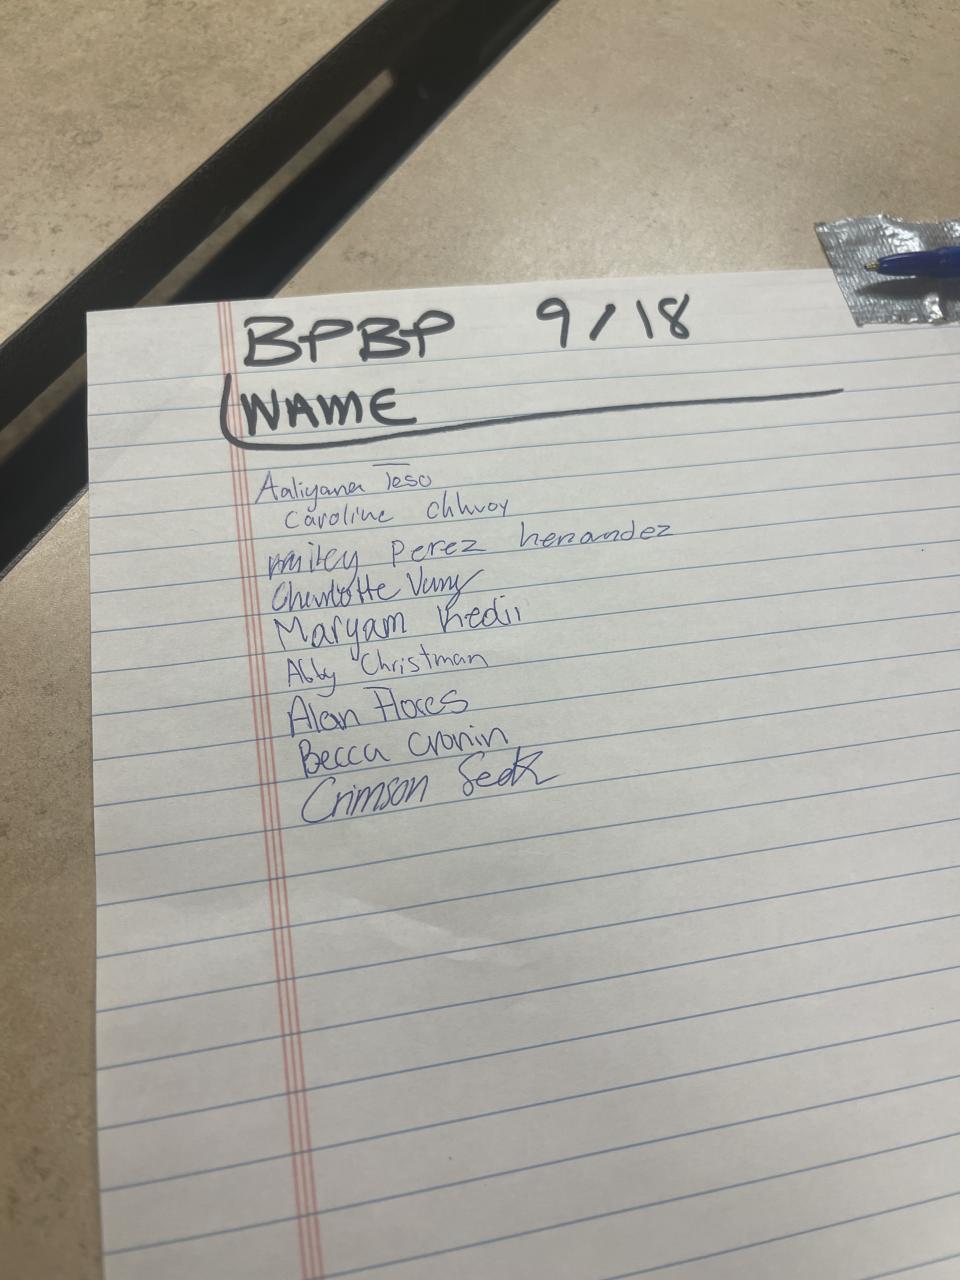 BPBP 9/18
NAME
Aaliyana Teso
Caroline Chhuoy
miley Perez henandez
Charlotte
Maryam
Abby Christman
Alan Flores
Becca Cronin
Crimson Seok